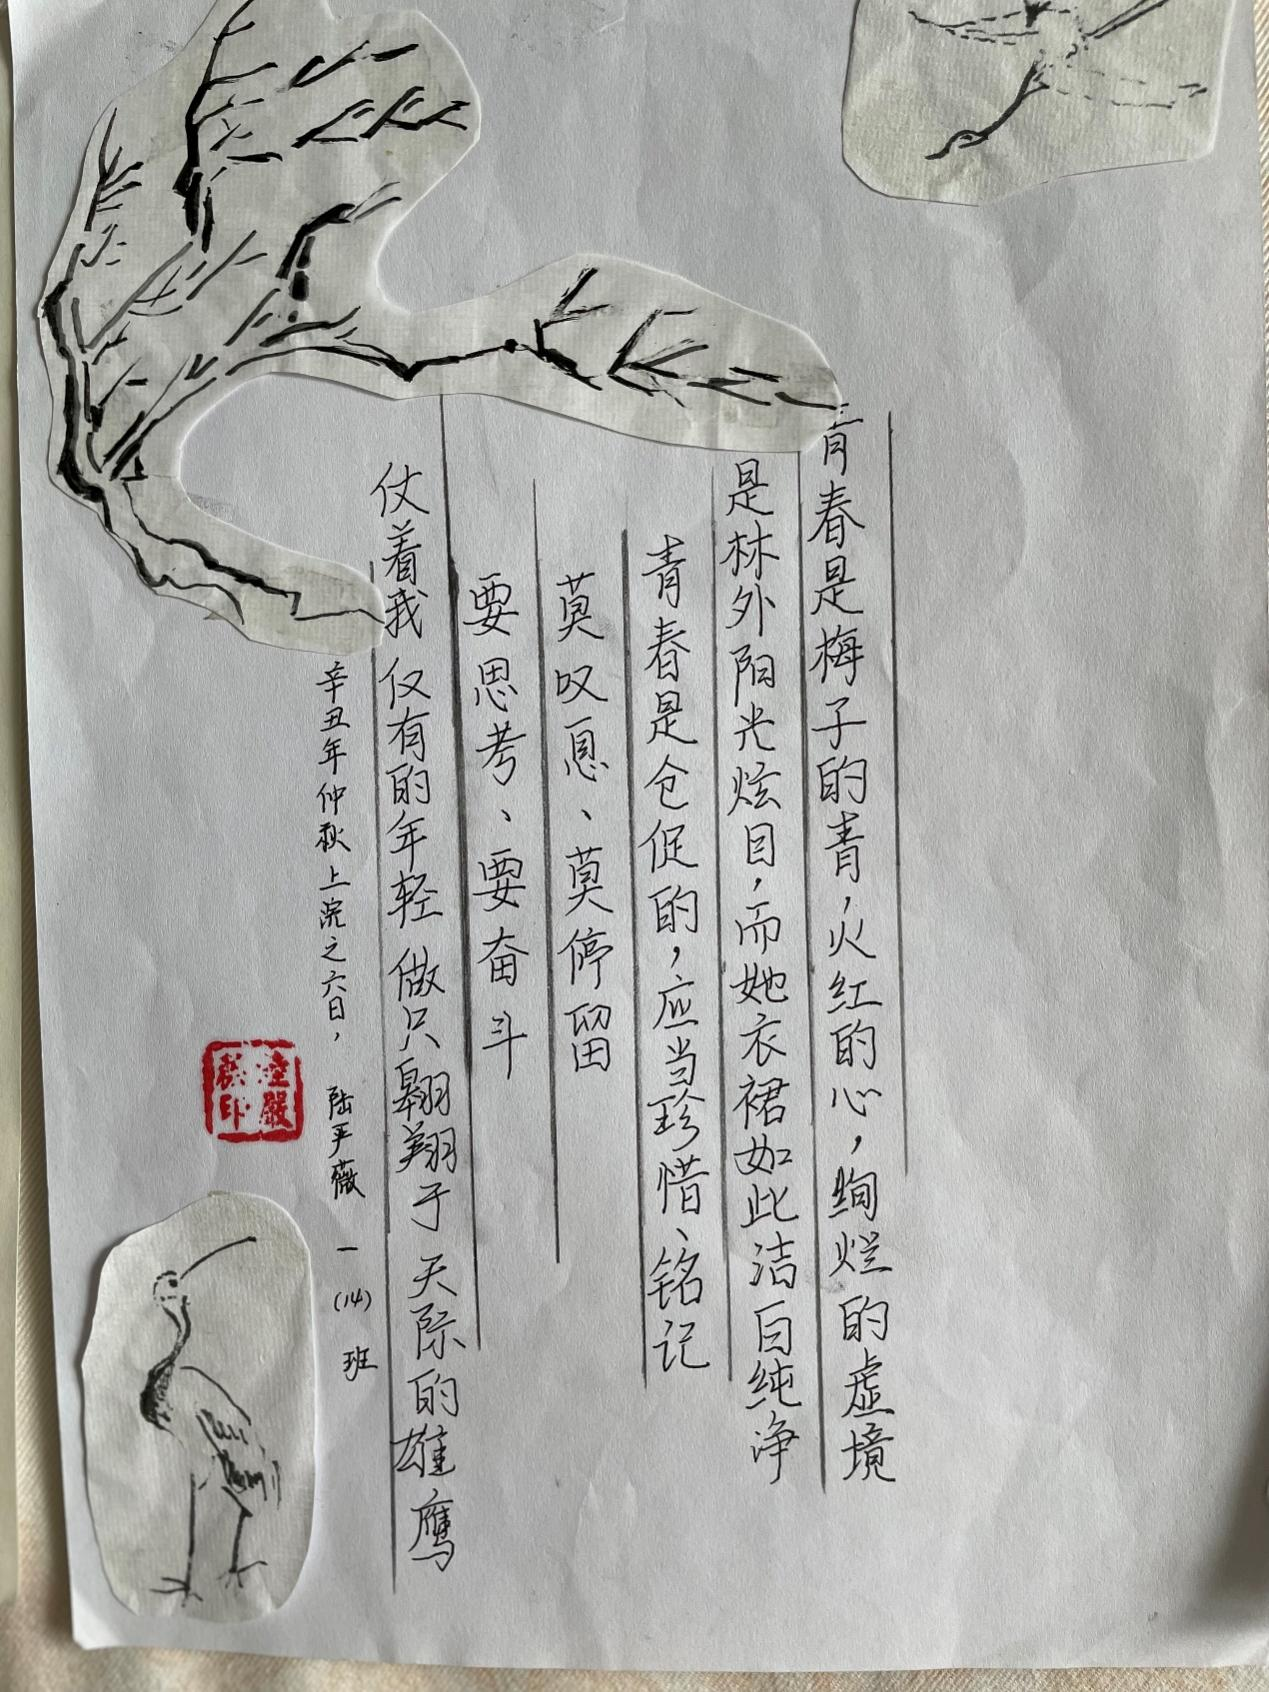 青春是梅子的青，火红的心，绚烂的虚境
是林外阳光炫目，而她衣裙如此洁白纯净
青春是仓促的，应当珍惜、铭记
莫叹息、莫停留
要思考、要奋斗
仗着我 仅有的年轻 做只翱翔于天际的雄鹰
辛丑年仲秋上浣之六日，陆严薇 一（14）班
陸嚴薇印